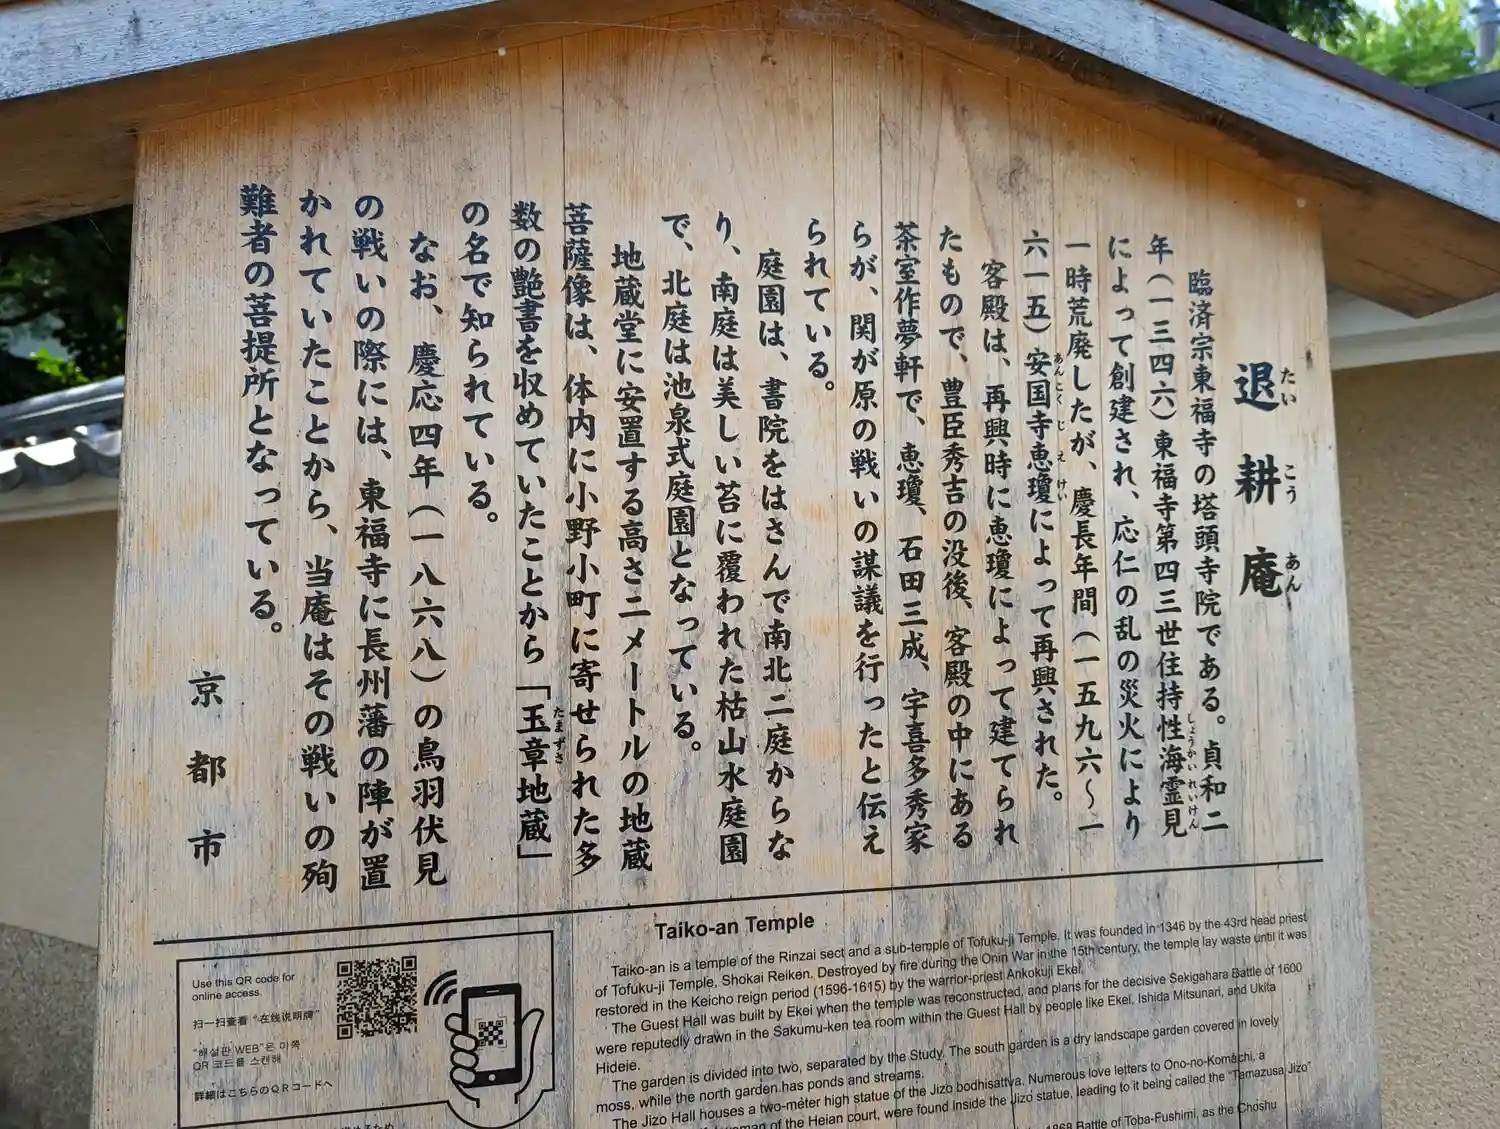 退耕庵
たいこうあん
臨済宗東福寺の塔頭寺院である。貞和二
年(一三四六)東福寺第四三世住持性海霊見
しょうかいれいけん
によって創建され、応仁の乱の災火により
一時荒廃したが、慶長年間(一五九六〜一
六一五)安国寺恵瓊によって再興された。
あんこくじえけい
客殿は、再興時に恵瓊によって建てられ
たもので、豊臣秀吉の没後、客殿の中にある
茶室作夢軒で、恵瓊、石田三成、宇喜多秀家
らが、関が原の戦いの謀議を行ったと伝え
られている。
庭園は、書院をはさんで南北二庭からな
り、南庭は美しい苔に覆われた枯山水庭園
で、北庭は池泉式庭園となっている。
地蔵堂に安置する高さ二メートルの地蔵
菩薩像は、体内に小野小町に寄せられた多
数の艶書を収めていたことから「玉章地蔵」
たまずさ
の名で知られている。
なお、慶応四年(一八六八)の鳥羽伏見
の戦いの際には、東福寺に長州藩の陣が置
かれていたことから、当庵はその戦いの殉
難者の菩提所となっている。
京都市
Use this QR code for
online access.
扫一扫查看“在线说明牌”
"해설판 WEB"은 이쪽
QR 코드를 스캔해
詳細はこちらのQRコードへ
Taiko-an Temple
Taiko-an is a temple of the Rinzai sect and a sub-temple of Tofuku-ji Temple. It was founded in 1346 by the 43rd head priest
of Tofuku-ji Temple, Shokai Reiken. Destroyed by fire during the Onin War in the 15th century, the temple lay waste until it was
restored in the Keicho reign period (1596-1615) by the warrior-priest Ankokuji Ekei.
The Guest Hall was built by Ekei when the temple was reconstructed, and plans for the decisive Sekigahara Battle of 1600
were reputedly drawn in the Sakumu-ken tea room within the Guest Hall by people like Ekei, Ishida Mitsunari, and Ukita
Hideie.
The garden is divided into two, separated by the Study. The south garden is a dry landscape garden covered in lovely
moss, while the north garden has ponds and streams.
The Jizo Hall houses a two-meter high statue of the Jizo bodhisattva. Numerous love letters to Ono-no-Komachi, a
of the Heian court, were found inside the Jizo statue, leading to it being called the "Tamazusa Jizo"
1868 Battle of Toba-Fushimi, as the Choshu